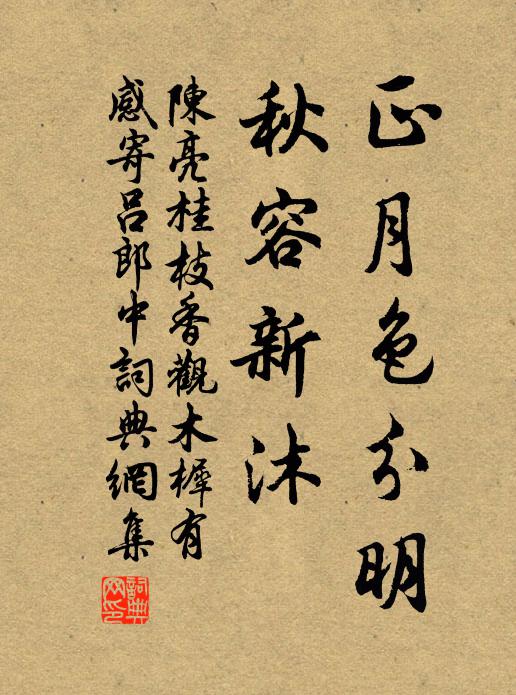 正月色分明
秋容新沐
陳亮桂枝香觀木樨有
感寄呂郎中詞典網集
詞典
网印